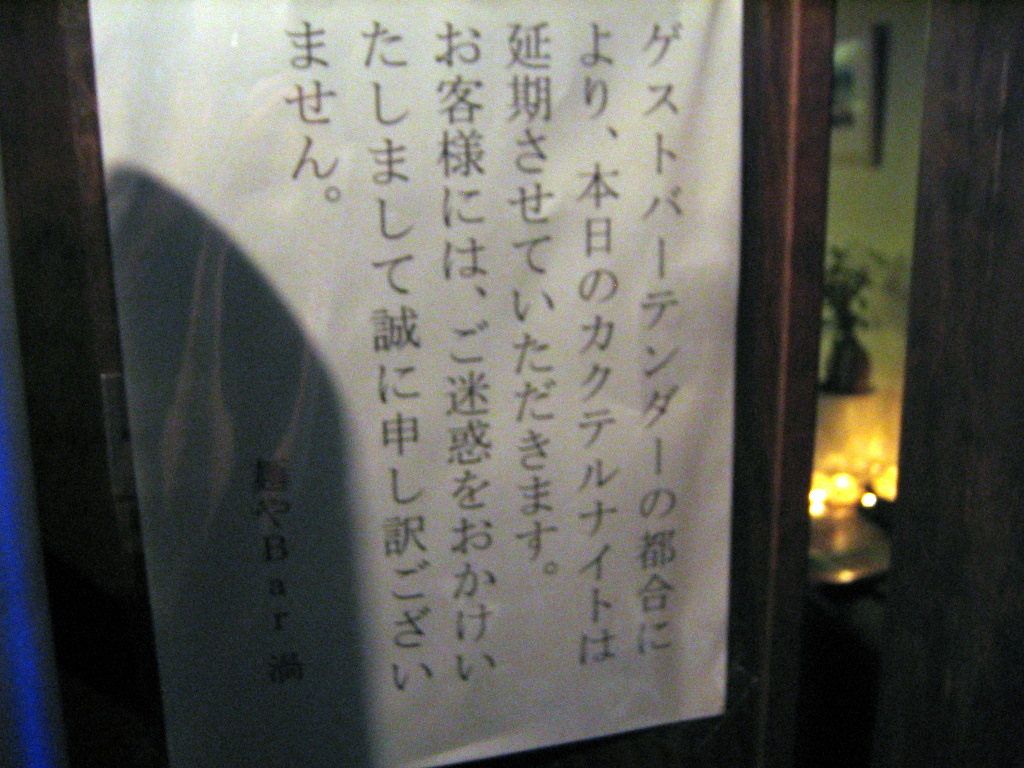 ゲストバーテンダーの都合に
より、本日のカクテルナイトは
延期させていただきます。
お客様には、ご迷惑をおかけい
たしまして誠に申し訳ござい
ません。
麺やBar 渦